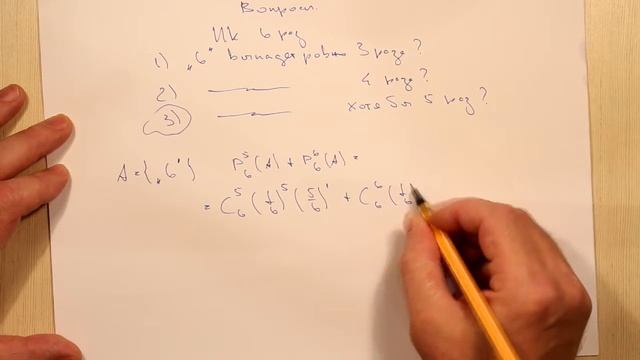 Вопросы.
ИК 6 раз
1) „6“ выпадет ровно 3 раза?
2) —〃— 4 раза?
3) —〃— хотя бы 5 раз?
A = {„6“} P₆⁵(A) + P₆⁶(A) =
= C₆⁵ (1/6)⁵ (5/6)¹ + C₆⁶ (1/6